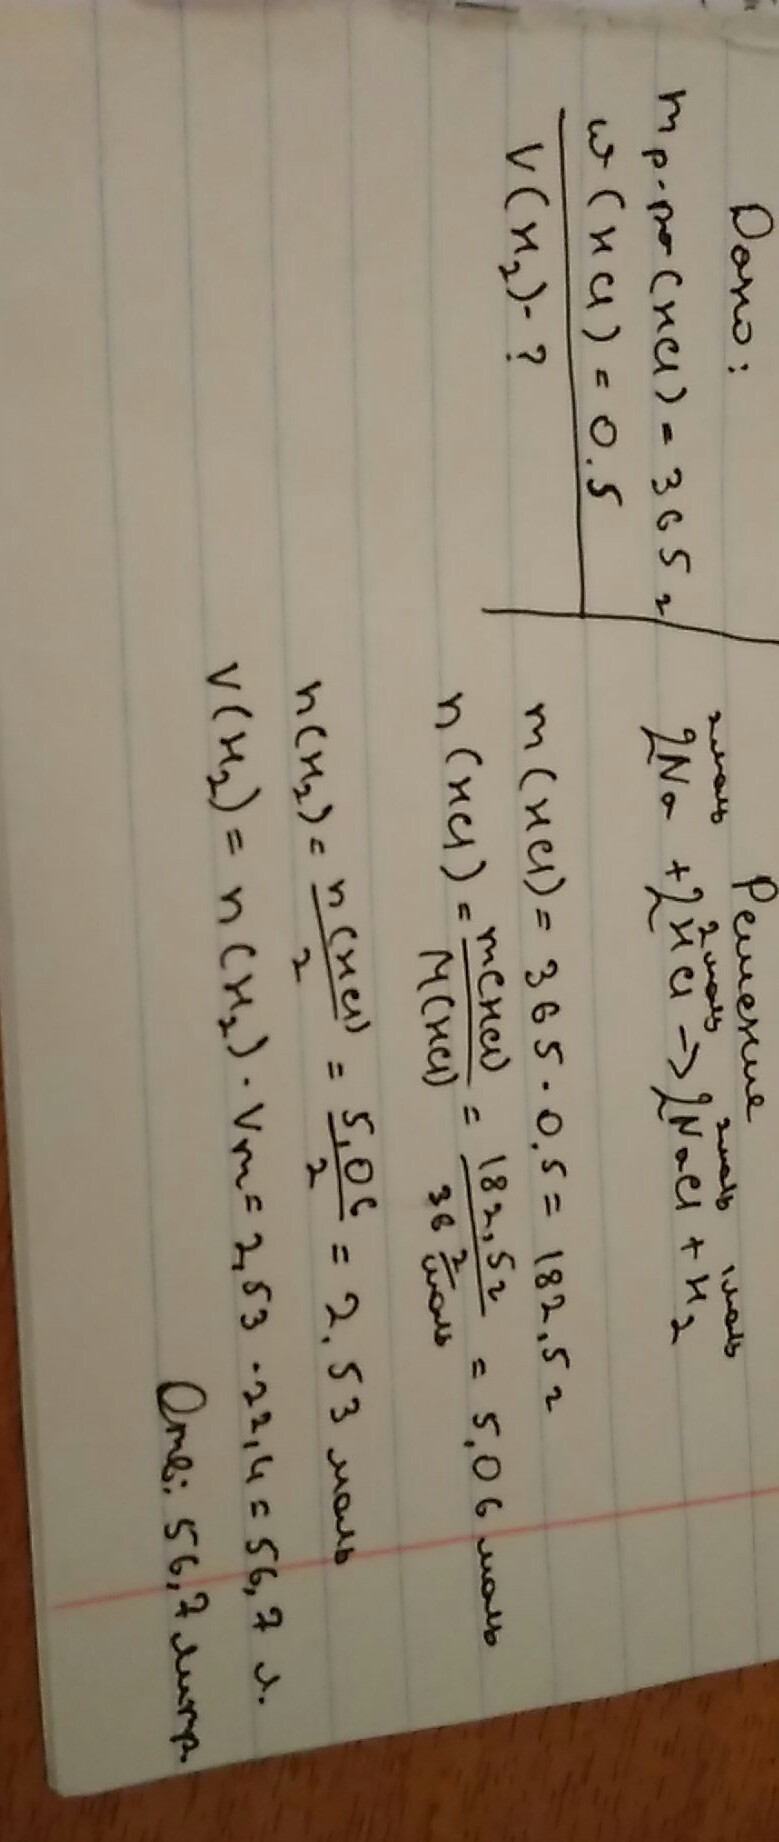 Дано:
m р-ра (HCl) = 365 г
w (HCl) = 0.5
V(H₂) - ?
Решение
2моль 2моль 2моль 1моль
2Na + 2HCl → 2NaCl + H₂
m (HCl) = 365 · 0,5 = 182,5 г
n (HCl) = m(HCl) / M(HCl) = 182,5 г / 36 г/моль = 5,06 моль
n(H₂) = n(HCl) / 2 = 5,06 / 2 = 2,53 моль
V(H₂) = n(H₂) · Vm = 2,53 · 22,4 = 56,7 л.
Отв: 56,7 литр